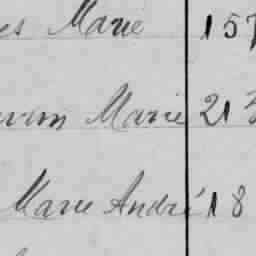 Marie 157
Marie 213
Marie André 18